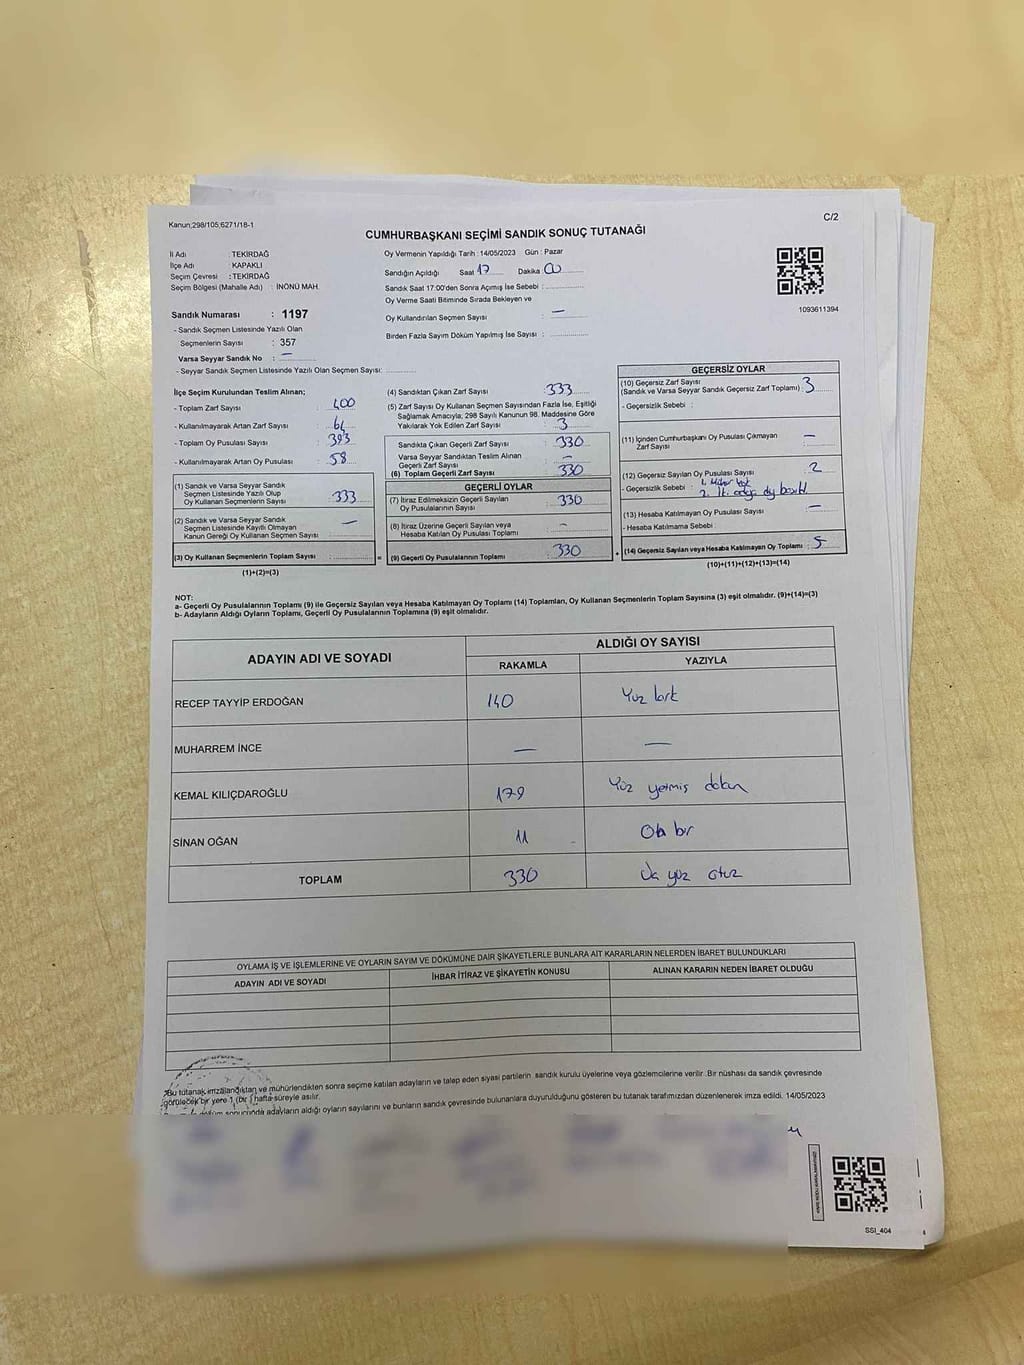 Kanun;298/105;6271/18-1
C/2
CUMHURBAŞKANI SEÇİMİ SANDIK SONUÇ TUTANAĞI
İl Adı : TEKİRDAĞ
İlçe Adı : KAPAKLI
Seçim Çevresi : TEKİRDAĞ
Seçim Bölgesi (Mahalle Adı) : İNÖNÜ MAH.
Sandık Numarası : 1197
- Sandık Seçmen Listesinde Yazılı Olan
Seçmenlerin Sayısı : 357
Varsa Seyyar Sandık No : —
- Seyyar Sandık Seçmen Listesinde Yazılı Olan Seçmen Sayısı:
Oy Vermenin Yapıldığı Tarih : 14/05/2023 Gün : Pazar
Sandığın Açıldığı Saat 17 Dakika : 00
Sandık Saat 17:00'den Sonra Açımış İse Sebebi :
Oy Verme Saati Bitiminde Sırada Bekleyen ve
Oy Kullandırılan Seçmen Sayısı : —
Birden Fazla Sayım Döküm Yapılmış İse Sayısı :
1093611394
İlçe Seçim Kurulundan Teslim Alınan;
- Toplam Zarf Sayısı : 400
- Kullanılmayarak Artan Zarf Sayısı : 64
- Toplam Oy Pusulası Sayısı : 393
- Kullanılmayarak Artan Oy Pusulası : 58
(1) Sandık ve Varsa Seyyar Sandık
Seçmen Listesinde Yazılı Olup
Oy Kullanan Seçmenlerin Sayısı : 333
(2) Sandık ve Varsa Seyyar Sandık
Seçmen Listesinde Kayıtlı Olmayan
Kanun Gereği Oy Kullanan Seçmen Sayısı : —
(3) Oy Kullanan Seçmenlerin Toplam Sayısı :
(1)+(2)=(3)
(4) Sandıktan Çıkan Zarf Sayısı : 333
(5) Zarf Sayısı Oy Kullanan Seçmen Sayısından Fazla İse, Eşitliği
Sağlamak Amacıyla; 298 Sayılı Kanunun 98. Maddesine Göre
Yakılarak Yok Edilen Zarf Sayısı : 3
Sandıkta Çıkan Geçerli Zarf Sayısı : 330
Varsa Seyyar Sandıktan Teslim Alınan
Geçerli Zarf Sayısı : —
(6) Toplam Geçerli Zarf Sayısı : 330
GEÇERLİ OYLAR
(7) İtiraz Edilmeksizin Geçerli Sayılan
Oy Pusulasının Sayısı : 330
(8) İtiraz Üzerine Geçerli Sayılan veya
Hesaba Katılan Oy Pusulası Toplamı : —
= (9) Geçerli Oy Pusulalarının Toplamı : 330
GEÇERSİZ OYLAR
(10) Geçersiz Zarf Sayısı
(Sandık ve Varsa Seyyar Sandık Geçersiz Zarf Toplamı) : 3
- Geçersizlik Sebebi :
(11) İçinden Cumhurbaşkanı Oy Pusulası Çıkmayan
Zarf Sayısı : —
(12) Geçersiz Sayılan Oy Pusulası Sayısı : 2
- Geçersizlik Sebebi : 1. Mühür yok
2. İki adaya oy
(13) Hesaba Katılmayan Oy Pusulası Sayısı : —
- Hesaba Katılmama Sebebi :
+ (14) Geçersiz Sayılan veya Hesaba Katılmayan Oy Toplamı : 5
(10)+(11)+(12)+(13)=(14)
NOT:
a- Geçerli Oy Pusulalarının Toplamı (9) ile Geçersiz Sayılan veya Hesaba Katılmayan Oy Toplamı (14) Toplamları, Oy Kullanan Seçmenlerin Toplam Sayısına (3) eşit olmalıdır. (9)+(14)=(3)
b- Adayların Aldığı Oyların Toplamı, Geçerli Oy Pusulalarının Toplamına (9) eşit olmalıdır.
ADAYIN ADI VE SOYADI ALDIĞI OY SAYISI
RAKAMLA YAZIYLA
RECEP TAYYİP ERDOĞAN 140 Yüz kırk
MUHARREM İNCE — —
KEMAL KILIÇDAROĞLU 179 Yüz yetmiş dokuz
SİNAN OĞAN 11 On bir
TOPLAM 330 Üç yüz otuz
OYLAMA İŞ VE İŞLEMLERİNE VE OYLARIN SAYIM VE DÖKÜMÜNE DAİR ŞİKAYETLERLE BUNLARA AİT KARARLARIN NELERDEN İBARET BULUNDUKLARI
ADAYIN ADI VE SOYADI İHBAR İTİRAZ VE ŞİKAYETİN KONUSU ALINAN KARARIN NEDEN İBARET OLDUĞU
*Bu tutanak imzalandıktan ve mühürlendikten sonra seçime katılan adayların ve talep eden siyasi partilerin sandık kurulu üyelerine veya gözlemcilerine verilir. Bir nüshası da sandık çevresinde
görülecek bir yere 1 (bir ) hafta süreyle asılır.
sonucunda adayların aldığı oyların sayılarını ve bunların sandık çevresinde bulunanlara duyurulduğunu gösteren bu tutanak tarafımızdan düzenlenerek imza edildi. 14/05/2023
SSI_404